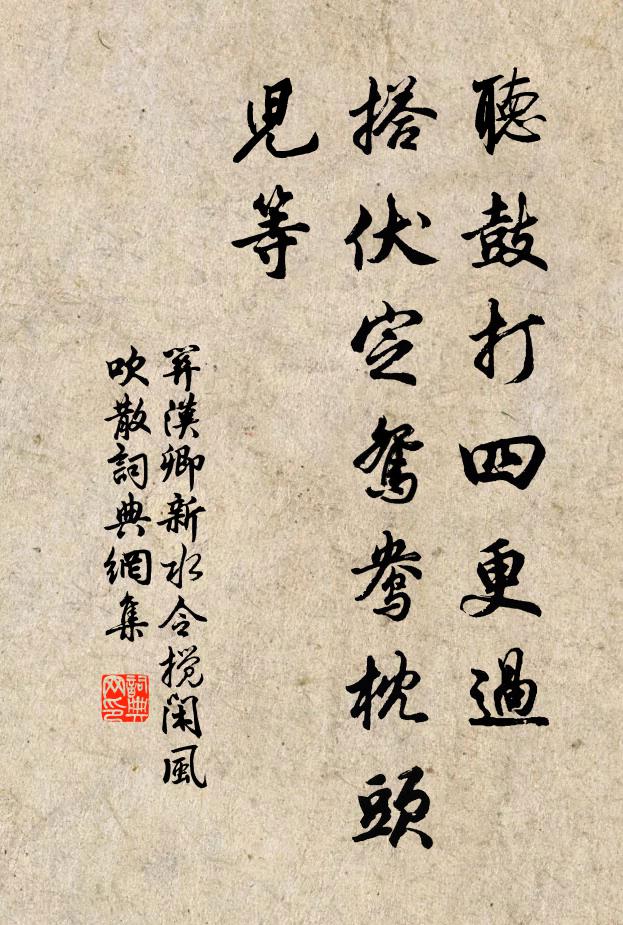 聽鼓打四更過
搭伏定鴛鴦枕頭
兒等
关漢卿新水令攪閑風
吹散詞典網集
詞典
网印